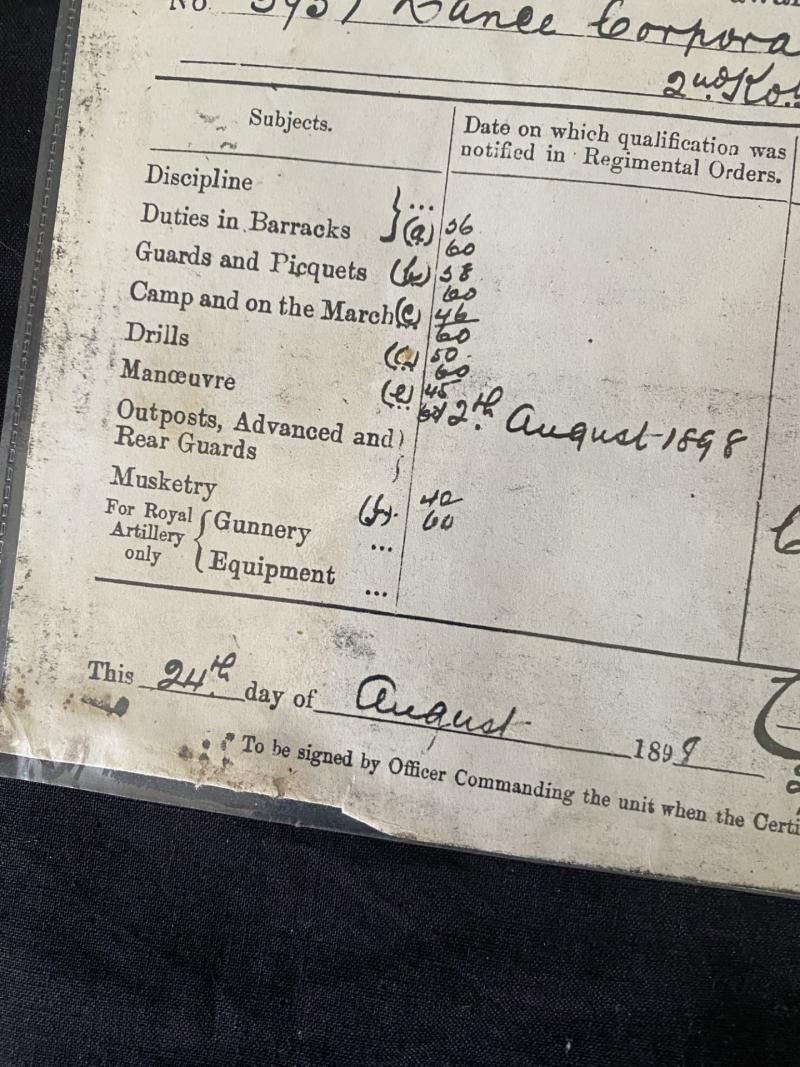 No. 3957 Lance Corpora
2nd Ko
Subjects.
Date on which qualification was
notified in Regimental Orders.
Discipline ...
Duties in Barracks (a) 56
60
Guards and Picquets (b) 58
60
Camp and on the March (c) 46
60
Drills (d) 50
60
Manœuvre (e) 45
60 12th August 1898
Outposts, Advanced and
Rear Guards
Musketry (f) 42
60
For Royal
Artillery
only
Gunnery ...
Equipment ...
This 24th day of August 1898
To be signed by Officer Commanding the unit when the Certi